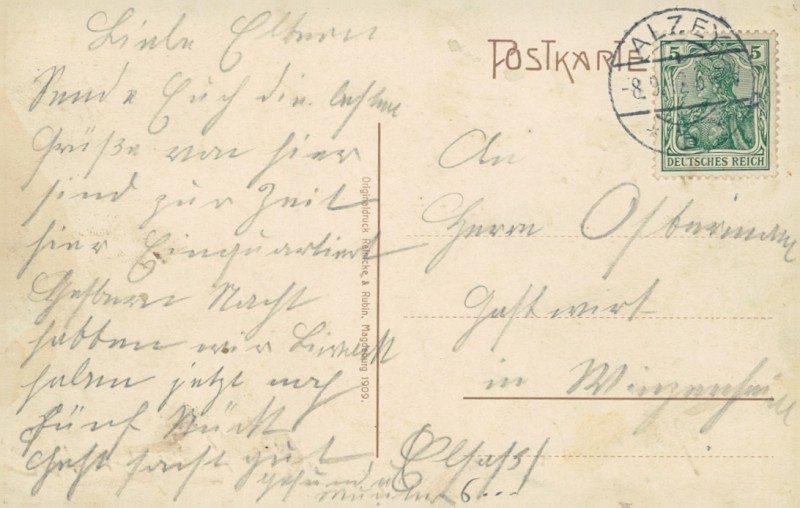 Liebe Eltern
Sende Euch die besten
Grüße von hier
sind zur Zeit
hier Einquartiert
Gestern Nacht
habben wir Biwack
haben jetzt noch
fünf Stück
Geht sonst gut
gesund u.
munter
POSTKARTE
ALZEY
-8.9.
5 5
DEUTSCHES REICH
An
Herrn Ostermann
Gastwirt
in Winzenheim
Elsass
Originaldruck Reinicke & Rubin, Magdeburg 1909.